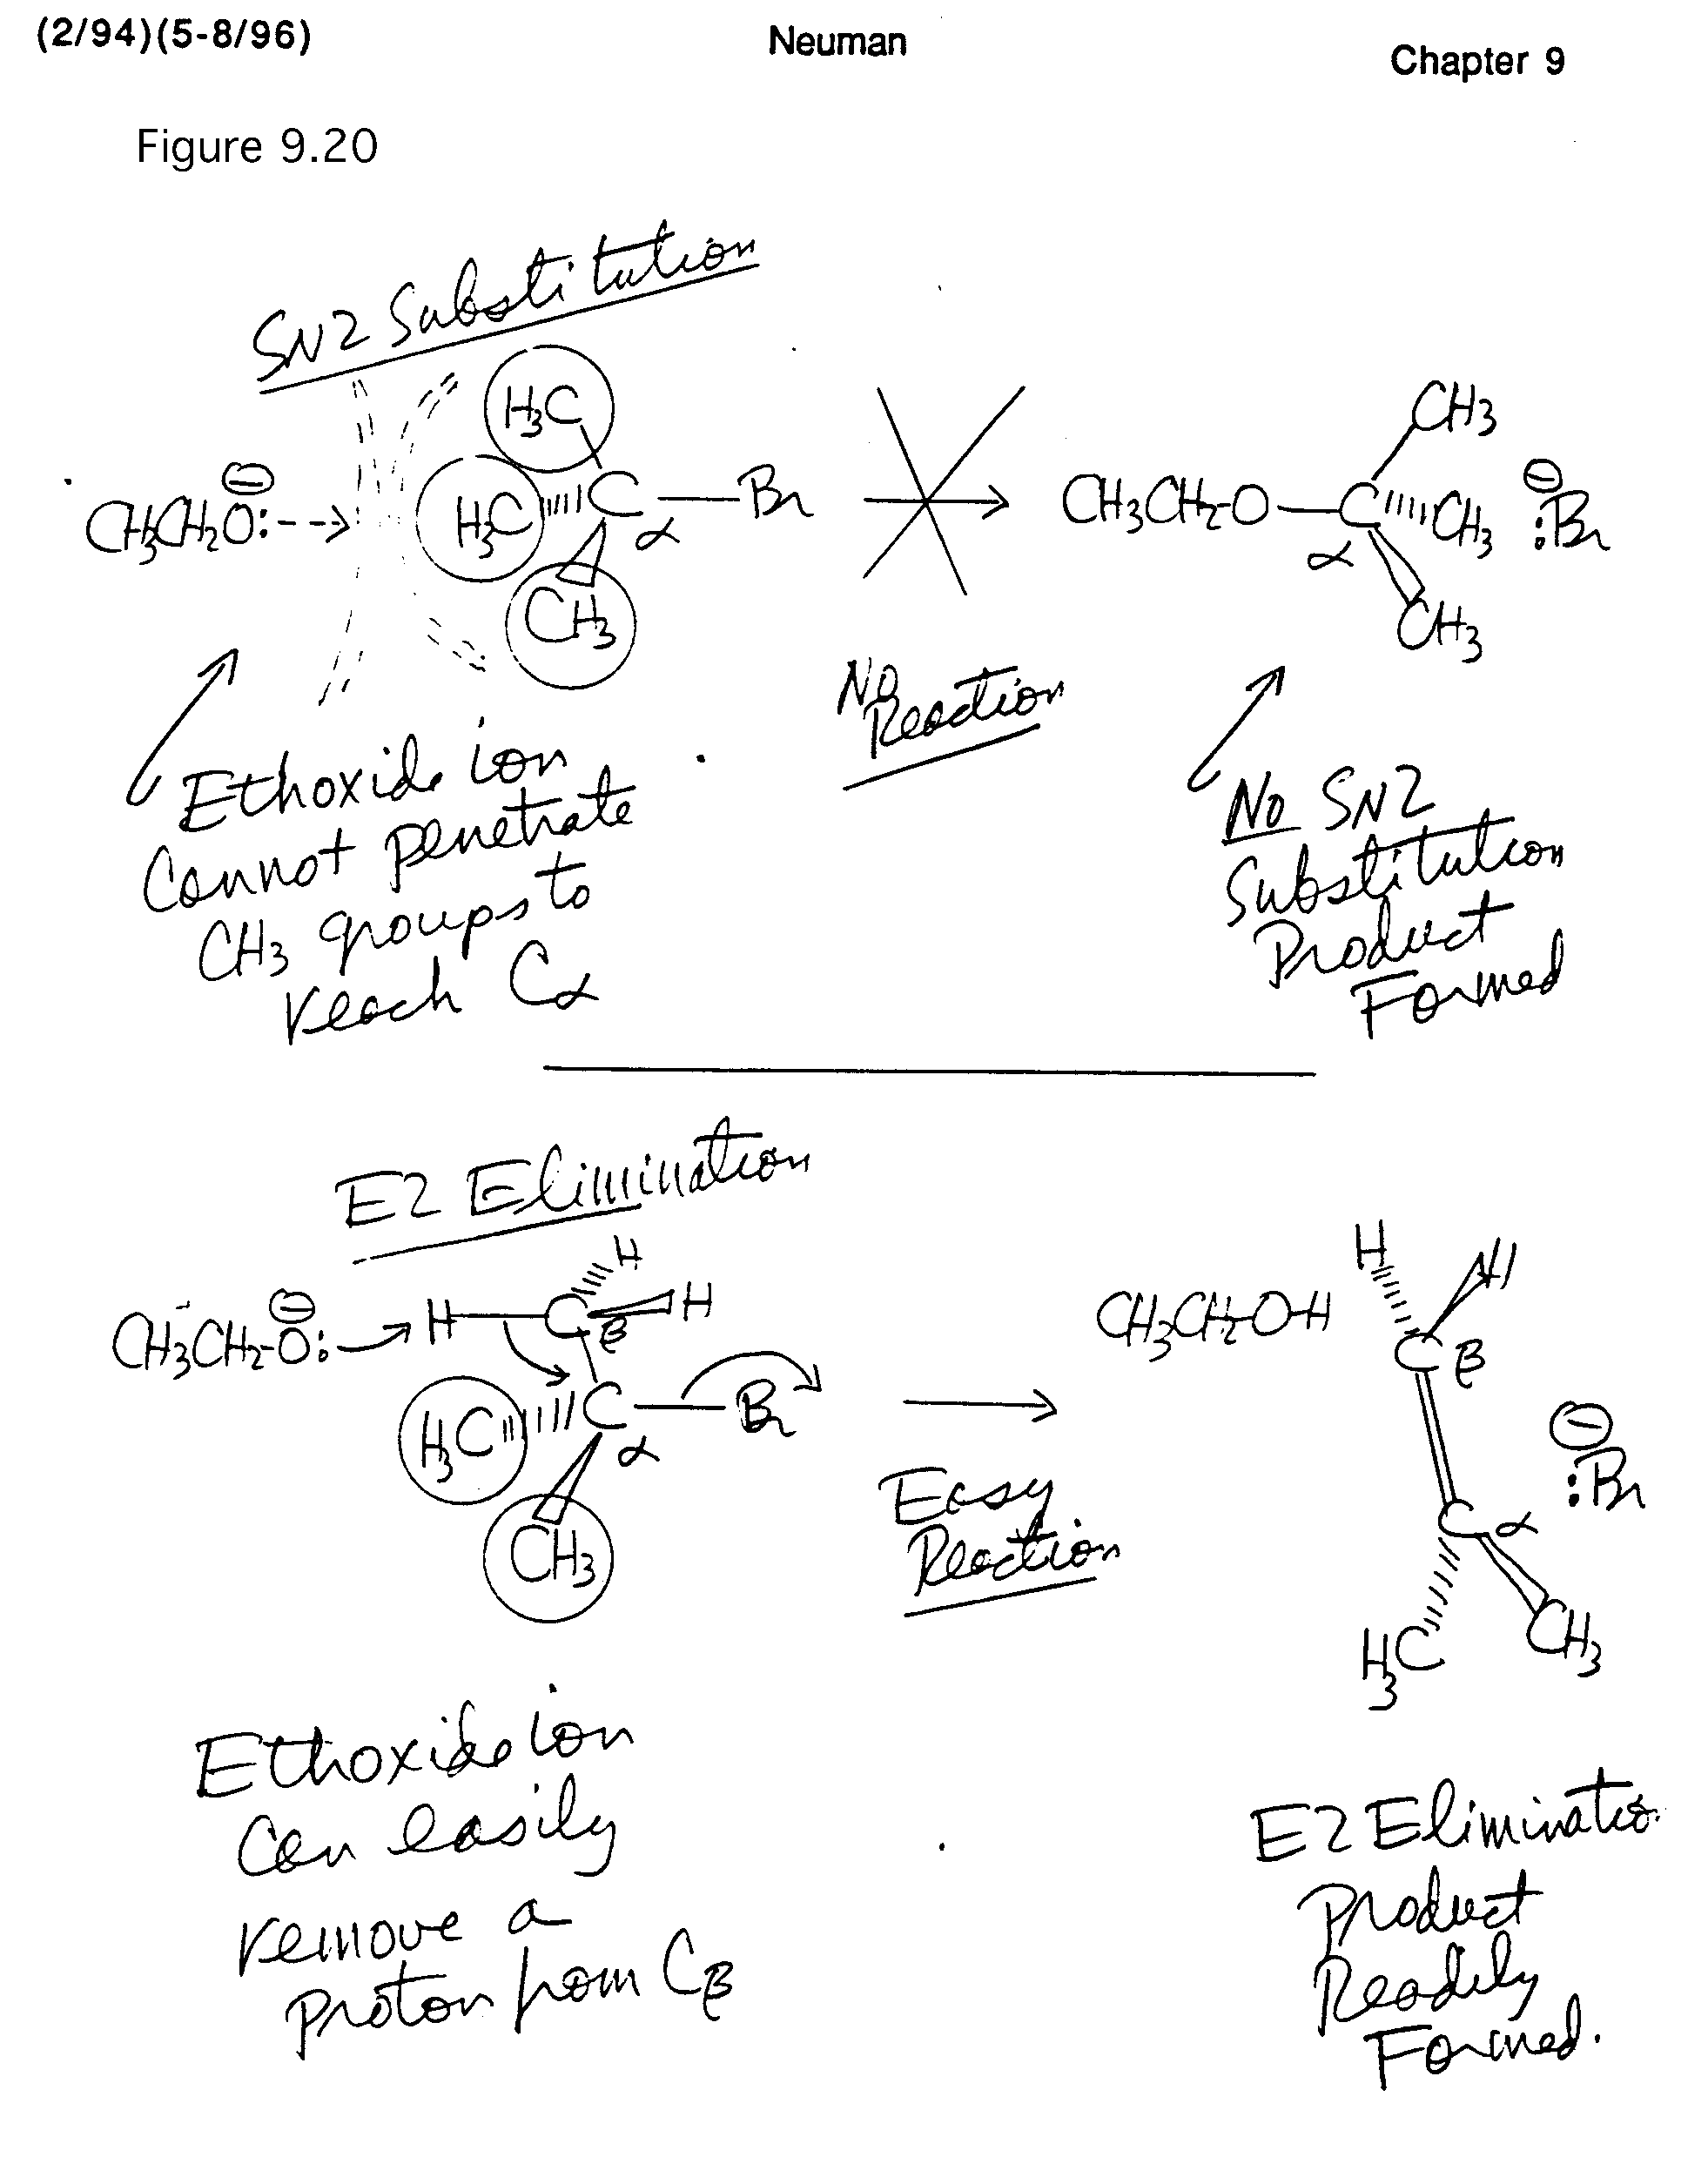 (2/94)(5-8/96) Neuman Chapter 9
Figure 9.20
SN2 Substitution
H3C CH3
CH3CH2O:⊖ H3C C Br CH3CH2-O C CH3 ⊖:Br
α α
CH3 CH3
No
Reaction
Ethoxide ion
Cannot penetrate
CH3 groups to
reach Cα
No SN2
Substitution
Product
Formed
E2 Elimination
H H H
CH3CH2-O:⊖ H C H CH3CH2-O-H
β C β
H3C C Br ⊖:Br
α C α
CH3 H3C CH3
Easy
Reaction
Ethoxide ion
Can easily
remove a
proton from Cβ
E2 Eliminatio
Product
Readily
Formed.